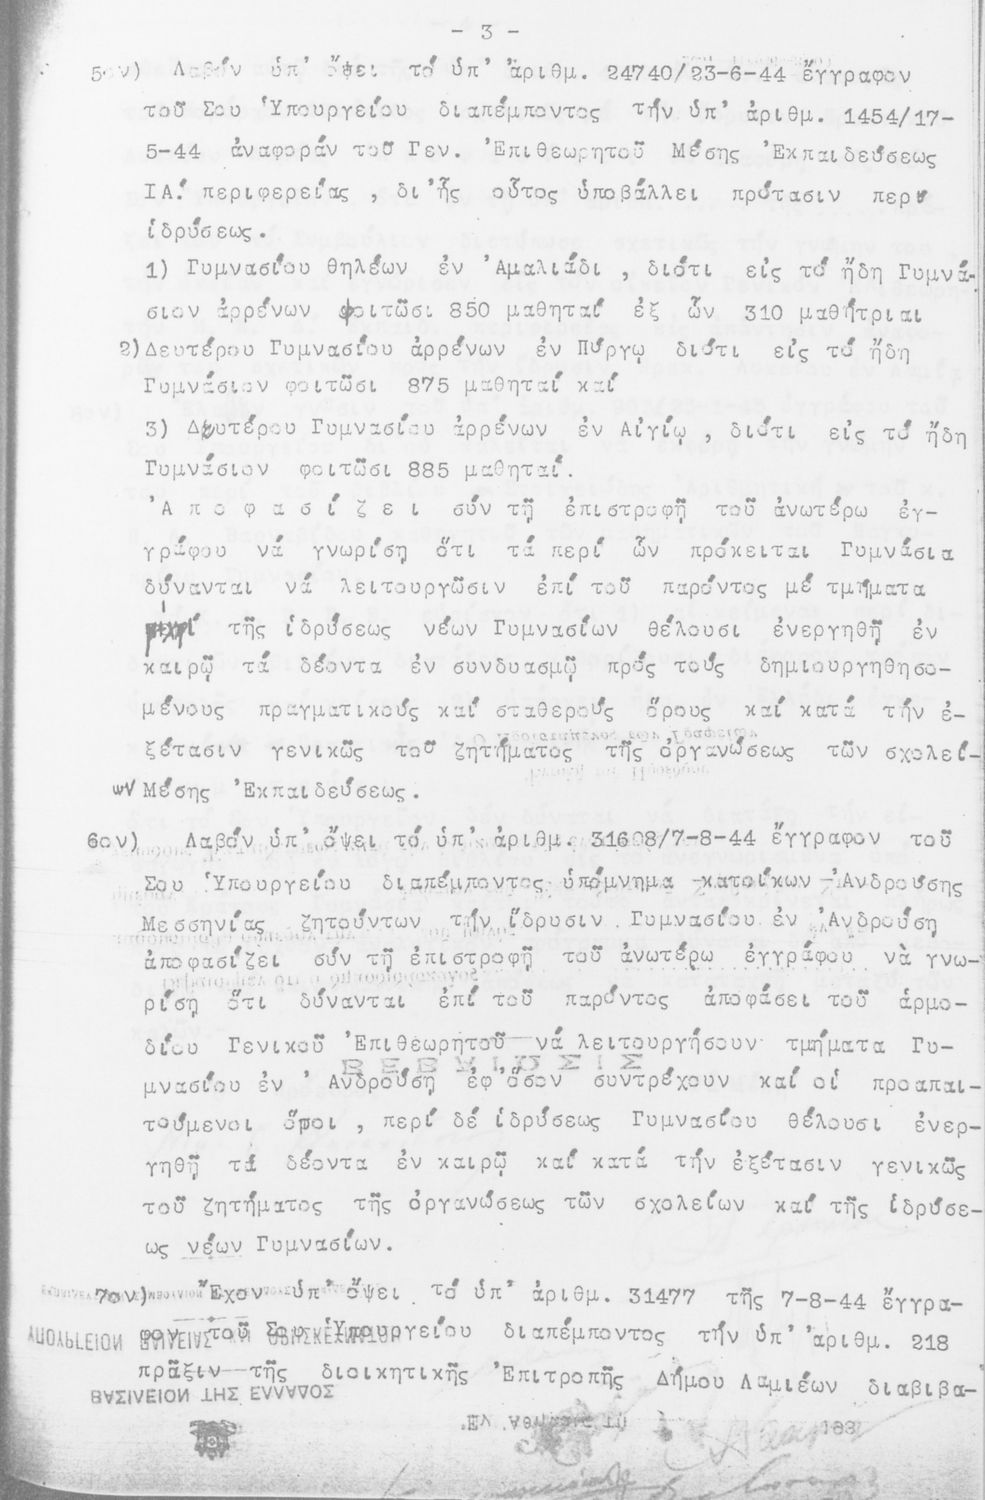 - 3 -
5ον) Λαβόν ὑπ' ὄψει τό ὑπ' ἀριθμ. 24740/23-6-44 ἔγγραφον
τοῦ Σου Ὑπουργείου διαπέμποντος τήν ὑπ' ἀριθμ. 1454/17-
5-44 ἀναφοράν τοῦ Γεν. Ἐπιθεωρητοῦ Μέσης Ἐκπαιδεύσεως
ΙΑ΄ περιφερείας , δι'ἧς οὗτος ὑποβάλλει πρότασιν περί
ἱδρύσεως.
1) Γυμνασίου θηλέων ἐν Ἀμαλιάδι , διότι εἰς τό ἤδη Γυμνά-
σιον ἀρρένων φοιτῶσι 850 μαθηταί ἐξ ὧν 310 μαθήτριαι
2) Δευτέρου Γυμνασίου ἀρρένων ἐν Πύργῳ διότι εἰς τό ἤδη
Γυμνάσιον φοιτῶσι 875 μαθηταί καί
3) Δευτέρου Γυμνασίου ἀρρένων ἐν Αἰγίῳ , διότι εἰς τό ἤδη
Γυμνάσιον φοιτῶσι 885 μαθηταί.
Ἀ π ο φ α σ ί ζ ε ι σύν τῇ ἐπιστροφῇ τοῦ ἀνωτέρω ἐγ-
γράφου νά γνωρίσῃ ὅτι τά περί ὧν πρόκειται Γυμνάσια
δύνανται νά λειτουργῶσιν ἐπί τοῦ παρόντος μέ τμήματα
μέχρι τῆς ἱδρύσεως νέων Γυμνασίων θέλουσι ἐνεργηθῆ ἐν
καιρῷ τά δέοντα ἐν συνδυασμῷ πρός τούς δημιουργηθησο-
μένους πραγματικούς καί σταθερούς ὅρους καί κατά τήν ἐ-
ξέτασιν γενικῶς τοῦ ζητήματος τῆς ὀργανώσεως τῶν σχολεί-
ων Μέσης Ἐκπαιδεύσεως.
6ον) Λαβόν ὑπ' ὄψει τό ὑπ' ἀριθμ. 31608/7-8-44 ἔγγραφον τοῦ
Σου Ὑπουργείου διαπέμποντος ὑπόμνημα κατοίκων Ἀνδρούσης
Μεσσηνίας ζητούντων τήν ἵδρυσιν Γυμνασίου ἐν Ἀνδρούσῃ
ἀποφασίζει σύν τῇ ἐπιστροφῇ τοῦ ἀνωτέρω ἐγγράφου νὰ γνω-
ρίσῃ ὅτι δύνανται ἐπί τοῦ παρόντος ἀποφάσει τοῦ ἁρμο-
δίου Γενικοῦ Ἐπιθεωρητοῦ νά λειτουργήσουν τμήματα Γυ-
μνασίου ἐν Ἀνδρούσῃ ἐφ'ὅσον συντρέχουν καί οἱ προαπαι-
τούμενοι ὅροι , περί δέ ἱδρύσεως Γυμνασίου θέλουσι ἐνερ-
γηθῆ τά δέοντα ἐν καιρῷ καί κατά τήν ἐξέτασιν γενικῶς
τοῦ ζητήματος τῆς ὀργανώσεως τῶν σχολείων καί τῆς ἱδρύσε-
ως νέων Γυμνασίων.
7ον) Ἔχον ὑπ' ὄψει τό ὑπ' ἀριθμ. 31477 τῆς 7-8-44 ἔγγρα-
φον τοῦ Σου Ὑπουργείου διαπέμποντος τήν ὑπ' ἀριθμ. 218
πρᾶξιν τῆς διοικητικῆς Ἐπιτροπῆς Δήμου Λαμιέων διαβιβα-
ΒΑΣΙΛΕΙΟΝ ΤΗΣ ΕΛΛΑΔΟΣ